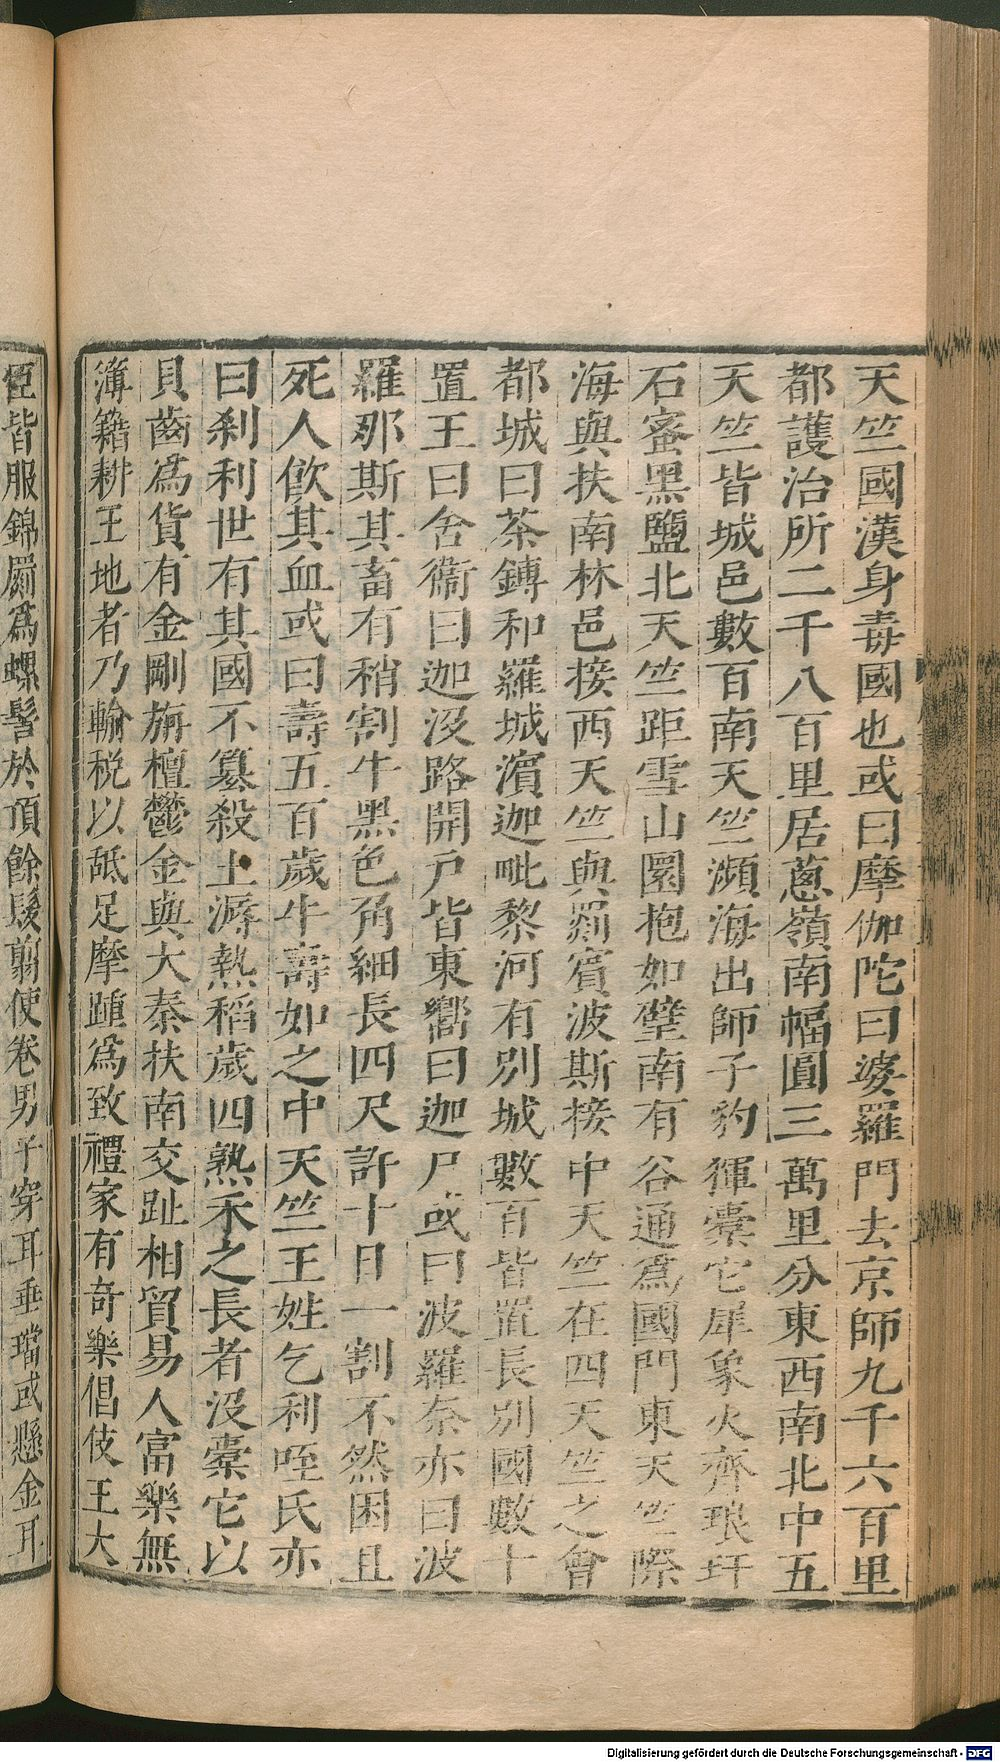 天竺國漢身毒國也或曰摩伽陀曰婆羅門去京師九千六百里
都護治所二千八百里居蔥嶺南幅圓三萬里分東西南北中五
天竺皆城邑數百南天竺瀕海出師子豹㺎橐它犀象火齊琅玕
石蜜黑鹽北天竺距雪山圜抱如璧南有谷通爲國門東天竺際
海與扶南林邑接西天竺與罽賓波斯接中天竺在四天竺之會
都城曰茶鎛和羅城濱迦毗黎河有別城數百皆置長別國數十
置王曰舍衞曰迦沒路開戸皆東嚮曰迦尸或曰波羅奈亦曰波
羅那斯其畜有稍割牛黑色角細長四尺許十日一割不然困且
死人飮其血或曰壽五百歲牛壽如之中天竺王姓乞利咥氏亦
曰剎利世有其國不篡殺土溽熱稻歲四熟禾之長者沒橐它以
貝齒爲貨有金剛旃檀鬱金與大秦扶南交趾相貿易人富樂無
簿籍耕王地者乃輸稅以舐足摩踵爲致禮家有奇樂倡伎王大
臣皆服錦罽爲螺髻於頂餘髮翦使卷男子穿耳垂璫或懸金耳
Digitalisierung gefördert durch die Deutsche Forschungsgemeinschaft - DFG